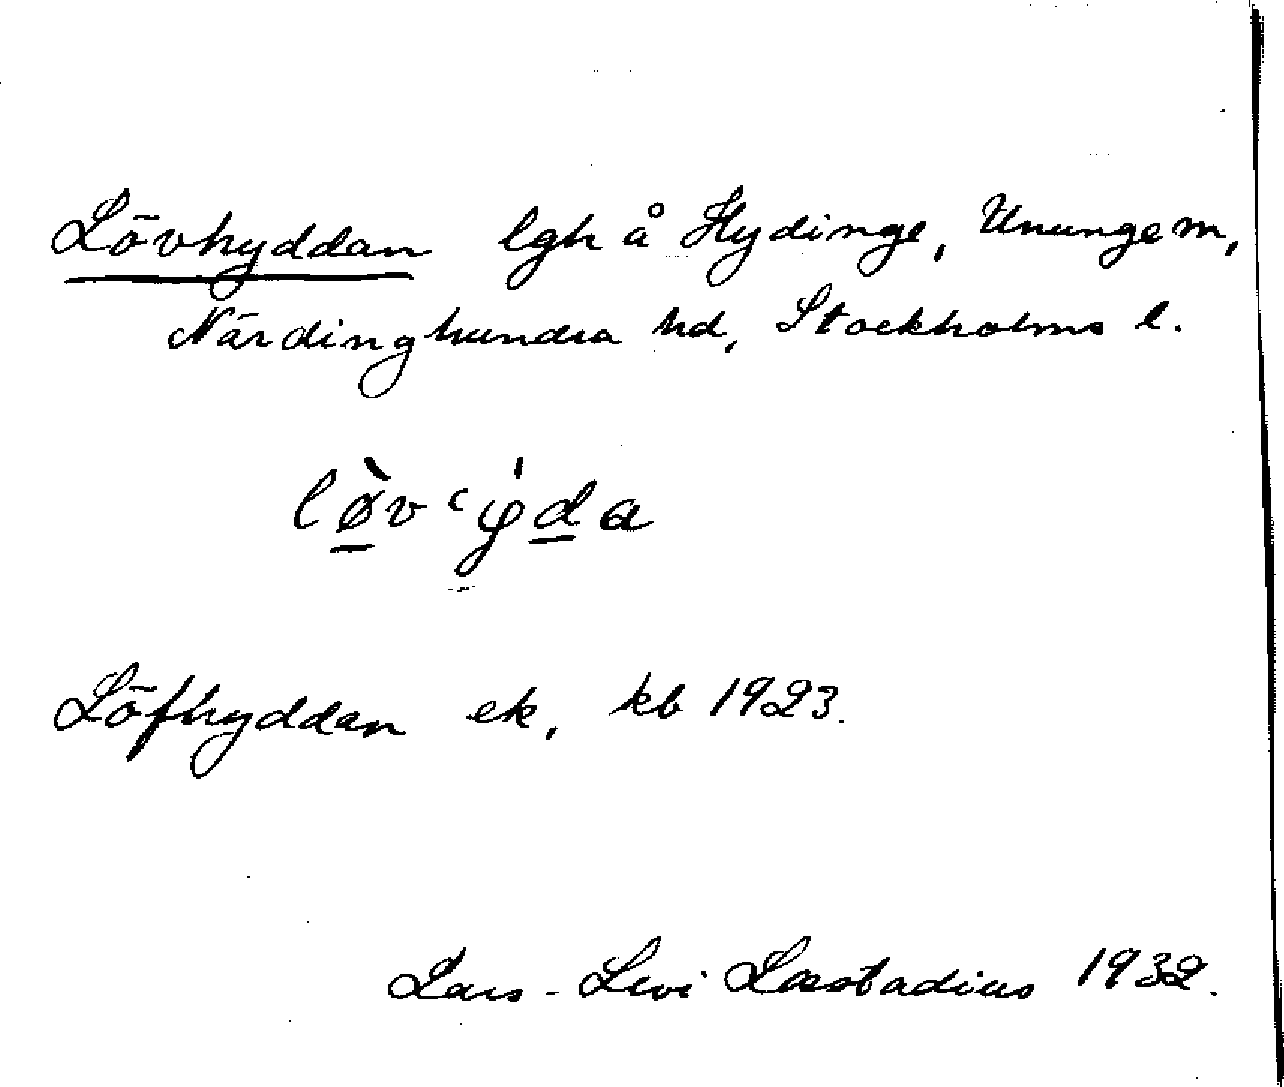 Lövhyddan lgh å Hydinge, Ununge sn,
Närdinghundra hd, Stockholms l.
lø̱̀v ʿýḏa
Löfhyddan ek, kb 1923.
Lars-Levi Læstadius 1932.